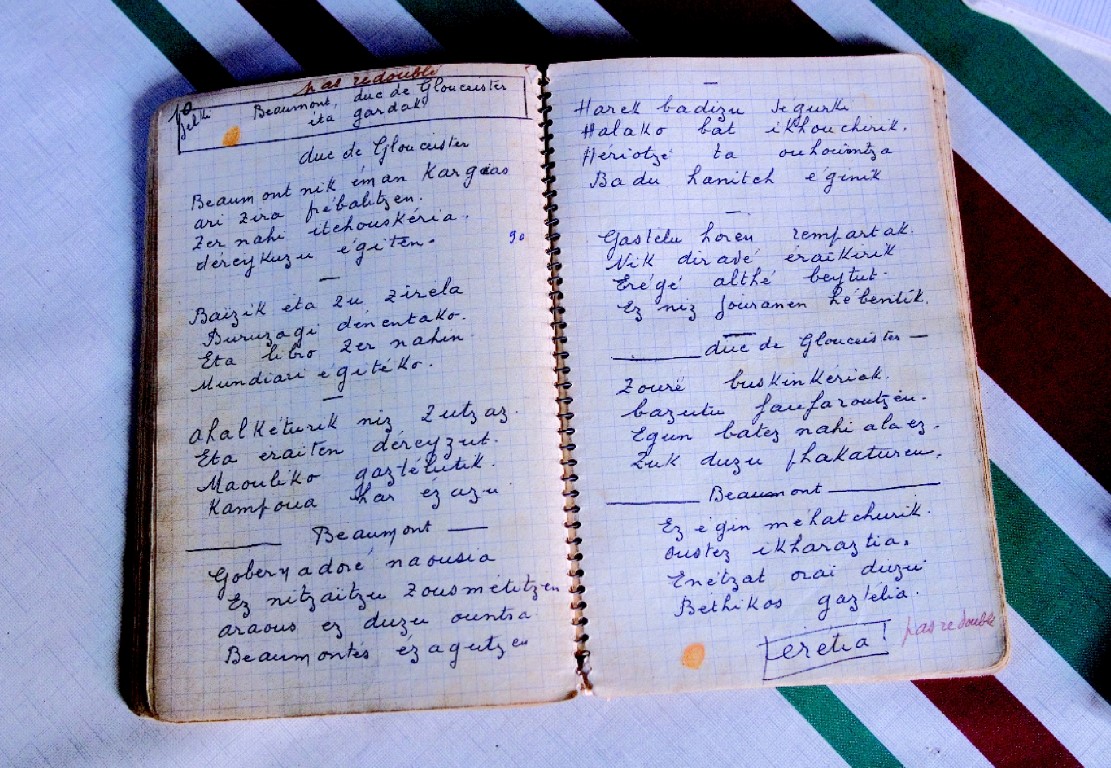 pas redoublé
jelki Beaumont, duc de Gloucester
eta gardak
duc de Gloucester
Beaumont nik éman Kargias
ari zira prébalitzen.
Zer nahi itchouskéria.
déreykuzu égiten.
90
Baizik eta zu zirela
Buruzagi dénentako.
Eta libro zer nahin
Mundiari égitéko.
ahalkéturik niz zutzaz.
Eta eraiten déreyzut.
Maouliko gaztélutik.
Kampoua har ézazu
Beaumont
Gobernadoré naousia
Ez nitzaitzu zousmétitzen
araous ez duzu ountsa
Beaumontés ézagutzen
Harek badizu ségurki
Halako bat ikhouchirik.
Hériotzé ta ouhountza
Badu hanitch éginik
Gastélu horen rempartak.
Nik diradé éraikirik
Erégé althé beytut.
Ez niz jouranen hébentik.
duc de Gloucester
Zouré buskinkériak.
bazutu faufaroutzen.
Egun batez nahi ala ez.
Zuk duzu phakaturen.
Beaumont
Ez égin méhatchurik.
oustez ikharaztia.
Enétzat orai duzu
Béthikos gaztélia.
eretia
pas redoublé